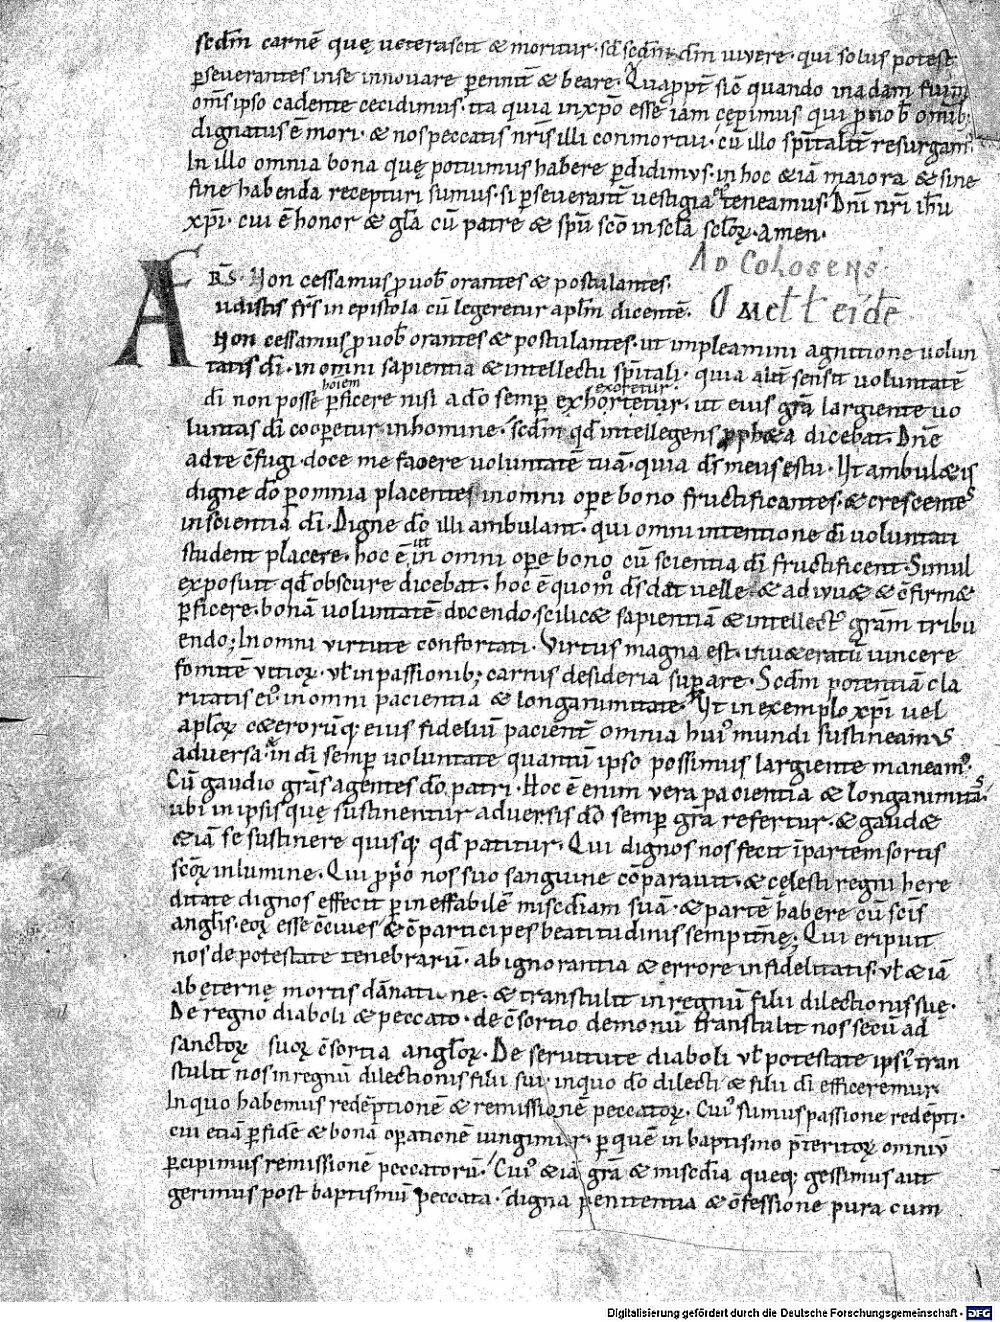 scdm̄ carnē quę ueterascit & moritur · sd̄ scdm̄ dm̄ vivere · qui solus potest
ꝑseverantes in se innovare ꝑennit̄ & beare · Quappt̄ sic̄ quando in adam fuim
om̄s ipso cadente cecidimus · ita quia in xp̄o esse iam cępimus qui ꝓ nob̄ omīb;
dignatus ē mori · & nos peccatis nr̄is illi conmortui · cū illo sp̄italit̄ resurgam᷒
In illo omnia bona quę potuimus habere ꝑdidimus · in hoc & iā maiora & sine
fine habenda recepturi sumus · si ꝑseverant̄ uestigia ei᷒ teneamus · Dn̄i nr̄i ih̄u
xp̄i · cui ē honor & gl̄a cū patre & sp̄u sc̄o in scl̄a scl̄oꝝ · Amen ·
Ad Colosens
FR̄S · Non cessamus ꝓ uob̄ orantes & postulantes ·
Audistis fr̄s in epistola cū legeretur apl̄m dicentē ·
Non cessamus ꝓ uob̄ orantes & postulantes · ut impleamini agnitione uolun
tatis dī · in omni sapientia & intellectu sp̄itali · quia aut̄ sensit uoluntatē
hōiem exoretur ·
dī non posse ꝑficere nisi a dō semꝑ exhortetur · ut eius gr̄a largiente uo
luntas dī cooꝑetur in homine · scdm̄ qd̄ intellegens ꝓph&a dicebat · Dn̄e
ad te c̄fugi · doce me facere uoluntatē tuā · quia ds̄ meus es tu · Ut ambul&is
digne dō ꝑ omnia placentes in omni oꝑe bono fructificantes · & crescentes
in scientia dī · Digne dō illi ambulant · qui omni intentione dī uoluntati
student placere · hoc ē ut in omni oꝑe bono cū scientia dī fructificent · Simul
exposuit qd̄ obscure dicebat · hoc ē quom̊ ds̄ dat uelle · & adiuu& & c̄firm&
ꝑficere · bonā uoluntatē docendo · scilic& sapientiā & intellect᷒ gr̄am tribu
endo; In omni virtute confortati · Virtus magna est · inu&eratū uincere
fomitē vitioꝝ · vl̄ in passionib; carnis desideria suꝑare · Scdm̄ potentiā cla
ritatis ei᷒ · in omni pacientia & longanimitate · Ut in exemplo xp̄i uel
apl̄oꝝ c&erorūq; eius fideliū pacient̄ omnia hui᷒ mundi sustineam᷒
adversa · & in dī semꝑ uoluntate quantū ipso possimus largiente maneam᷒ ·
Cū gaudio gr̄as agentes dō patri · Hoc ē enim vera pacientia & longanimitas
ubi in ipsis quę sustinentur adversis dō semꝑ gr̄a refertur · & gaud&
& iā se sustinere quisq; qd̄ patitur · Qui dignos nos fecit ī partem sortis
sc̄oꝝ in lumine · Qui ꝓprio nos suo sanguine cōparauit · & cęlesti regni here
ditate dignos effecit ꝑ ineffabilē misc̄diam suā · & partē habere cū sc̄is
angl̄is · eoꝝ esse c̄cives & c̄participes beatitudinis sempit̄nę; Qui eripuit
nos de potestate tenebrarū · ab ignorantia & errore infidelitatis · vl̄ & iā
ab ęternę mortis dānatione · & transtulit in regnū filii dilectionis suę ·
De regno diaboli & peccato · de c̄sortio demonū transtulit nos secū ad
sanctoꝝ suoꝝ c̄sortia angl̄oꝝ · De seruitute diaboli vl̄ potestate ipsi᷒ tran
stulit nos in regnū dilectionis filii sui · in quo dō dilecti & filii dī efficeremur ·
In quo habemus redēptionē & remissionē peccatoꝝ · Cui᷒ sumus passione redēpti ·
cui etiā ꝑ fidē & bonā oꝑationē iungimur · ꝑ quē in baptismo p̄teritoꝝ omniū
ꝑcipimus remissionē peccatorū · Cui᷒ & iā gr̄a & misc̄dia queq; gessimus aut
gerimus post baptismū peccata · digna penitentia & c̄fessione pura cum
Digitalisierung gefördert durch die Deutsche Forschungsgemeinschaft - DFG